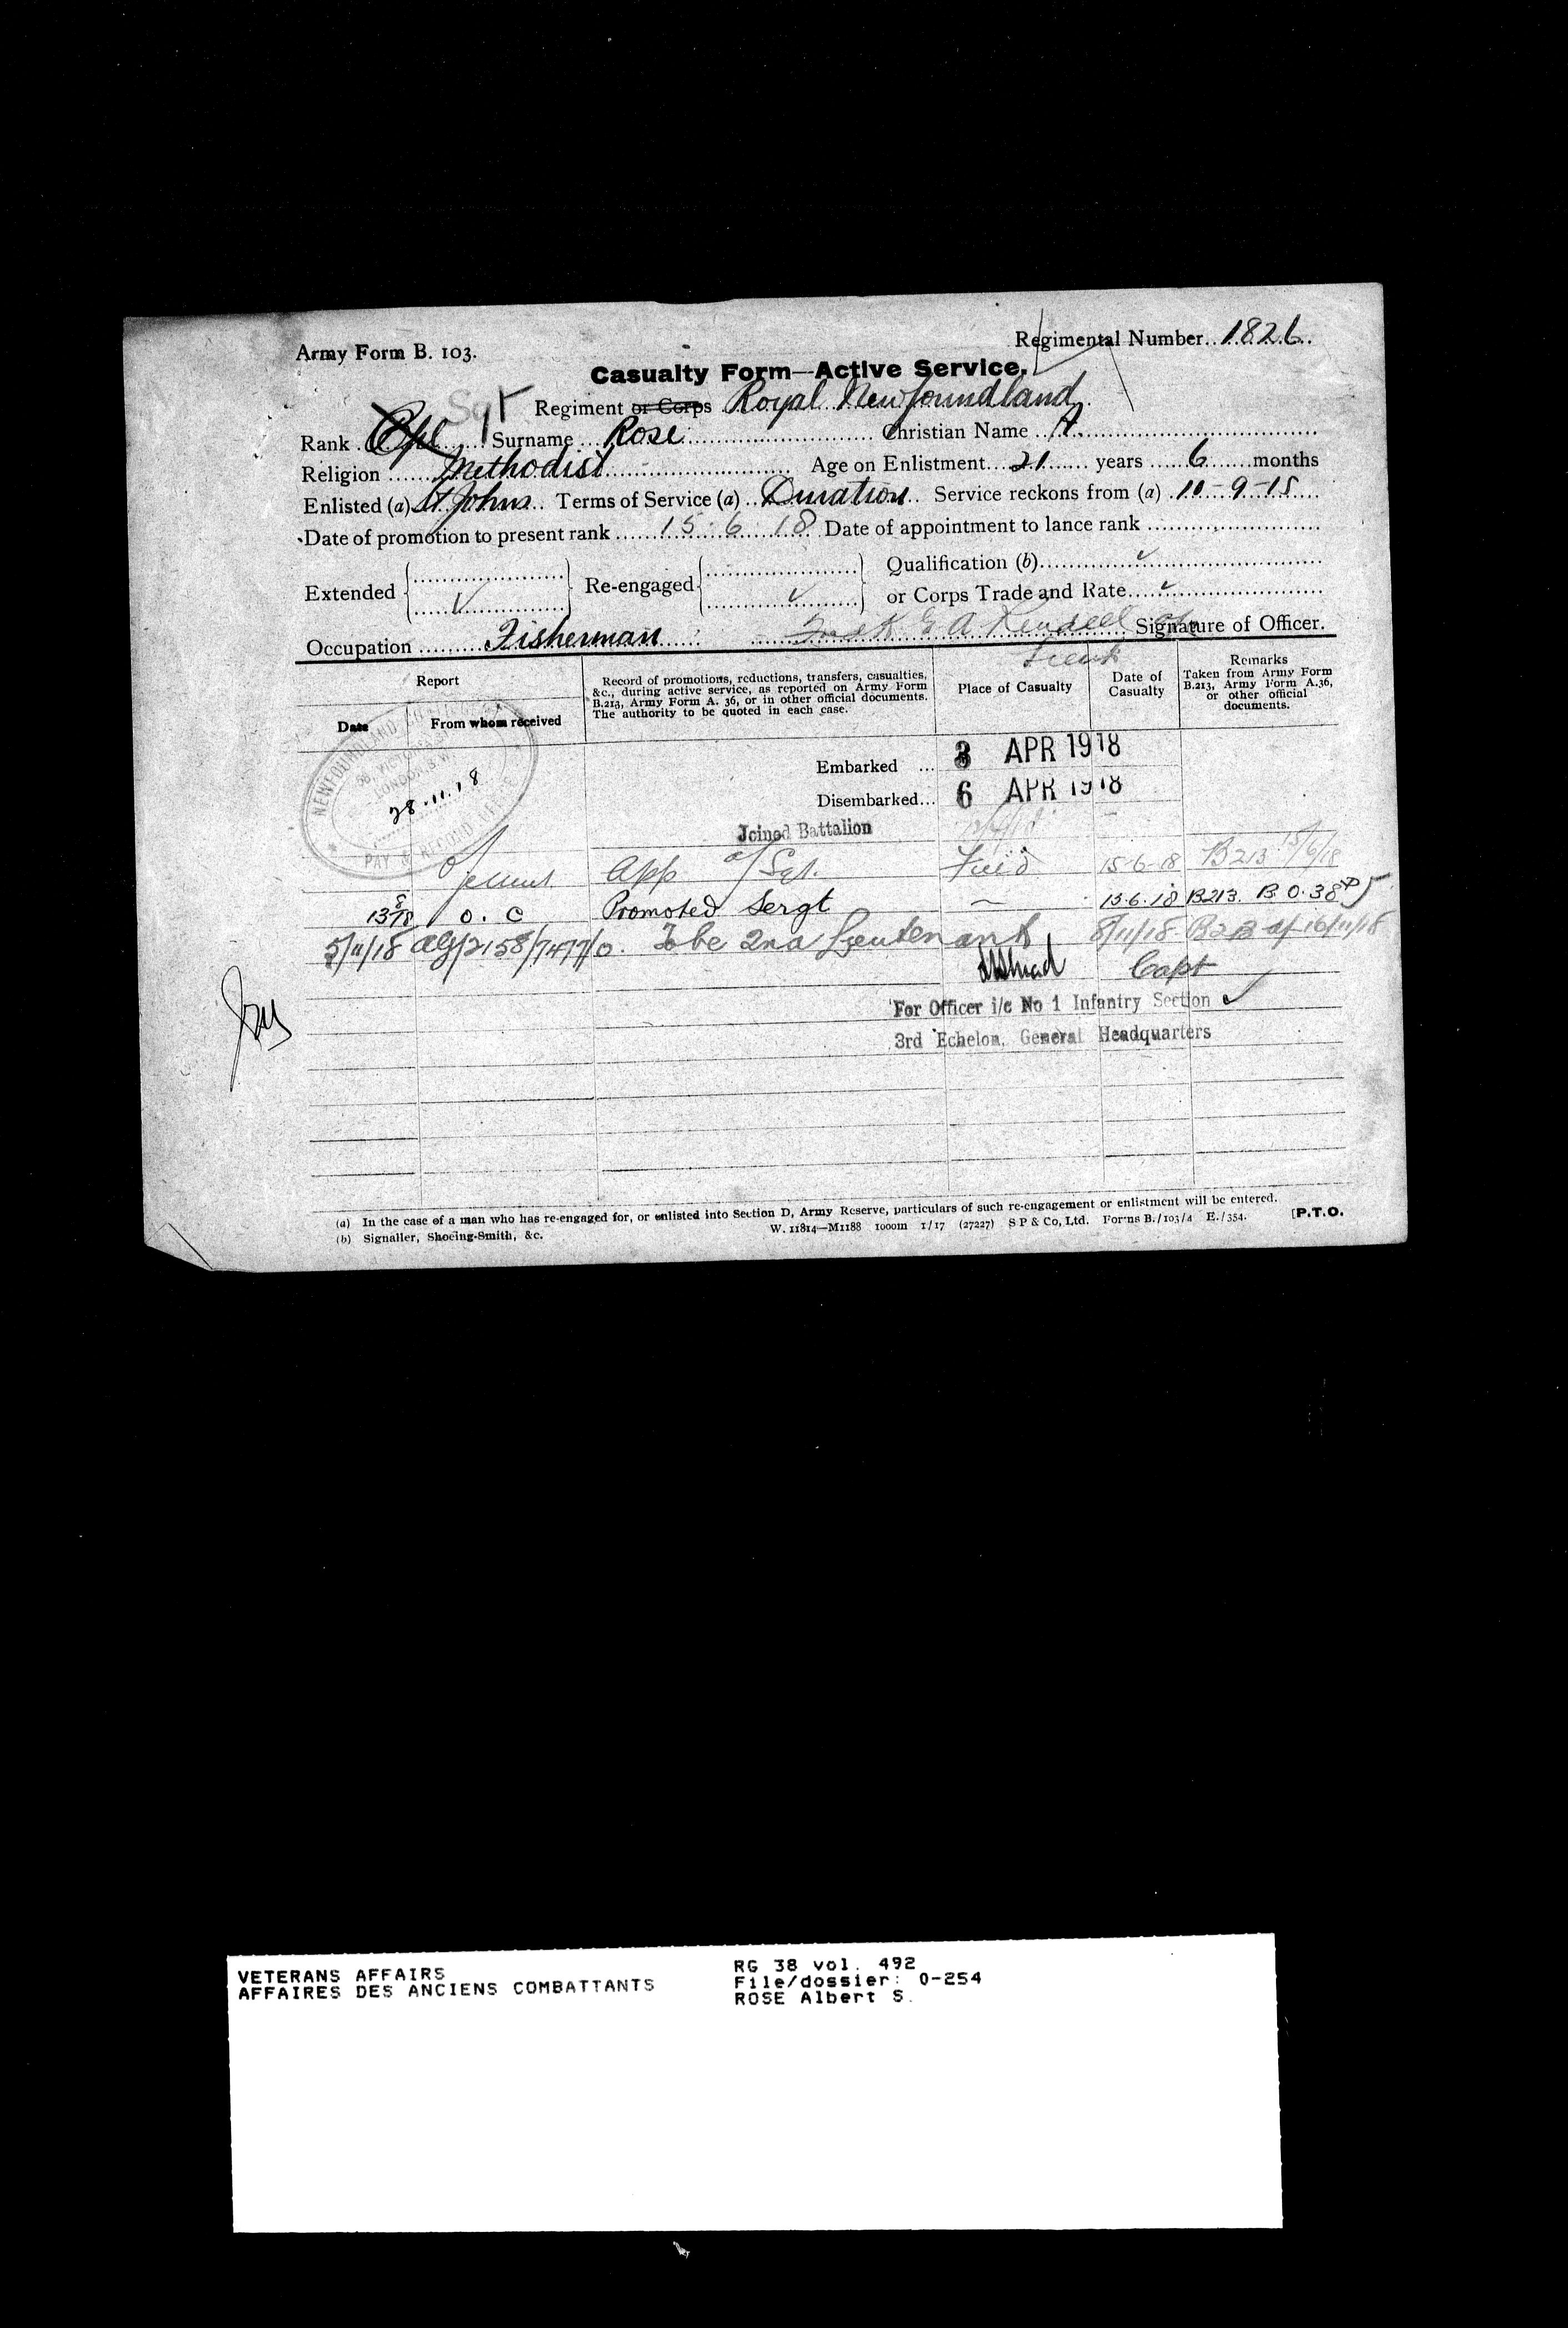 Army Form B. 103.
Regimental Number..1826.
Casualty Form—Active Service.
Sgt Regiment or Corps Royal Newfoundland
Rank Cpl Surname Rose Christian Name A.
Religion Methodist Age on Enlistment 21 years 6 months
Enlisted (a) St Johns Terms of Service (a) Duration Service reckons from (a) 10-9-15
Date of promotion to present rank 15.6.18 Date of appointment to lance rank
Qualification (b)
Extended Re-engaged
or Corps Trade and Rate
Occupation Fisherman Signature of Officer.
Lieut
Report
Date From whom received
Record of promotions, reductions, transfers, casualties,
&c., during active service, as reported on Army Form
B.213, Army Form A. 36, or in other official documents.
The authority to be quoted in each case.
Place of Casualty
Date of
Casualty
Remarks
Taken from Army Form
B.213, Army Form A.36,
or other official
documents.
NEWFOUNDLAND
LONDON, S.W.
28.11.18
PAY & RECORD OFFICE
Embarked ... 3 APR 1918
Disembarked... 6 APR 1918
Joined Battalion
App a/Sgt. Field 15-6-18 B213 15/6/18
13/8/18 O. C Promoted Sergt — 15.6.18 B213. B.O.38
5/11/18 AG/2158/7477/0. To be 2nd Lieutenant 8/11/18
Capt
For Officer i/c No 1 Infantry Section
3rd Echelon, General Headquarters
(a) In the case of a man who has re-engaged for, or enlisted into Section D, Army Reserve, particulars of such re-engagement or enlistment will be entered.
(b) Signaller, Shoeing-Smith, &c.
W. 11814—M1188 1000m 1/17 (27227) S P & Co, Ltd. Forms B./103/4 E./354.
[P.T.O.
VETERANS AFFAIRS
AFFAIRES DES ANCIENS COMBATTANTS
RG 38 vol. 492
File/dossier: 0-254
ROSE Albert S.